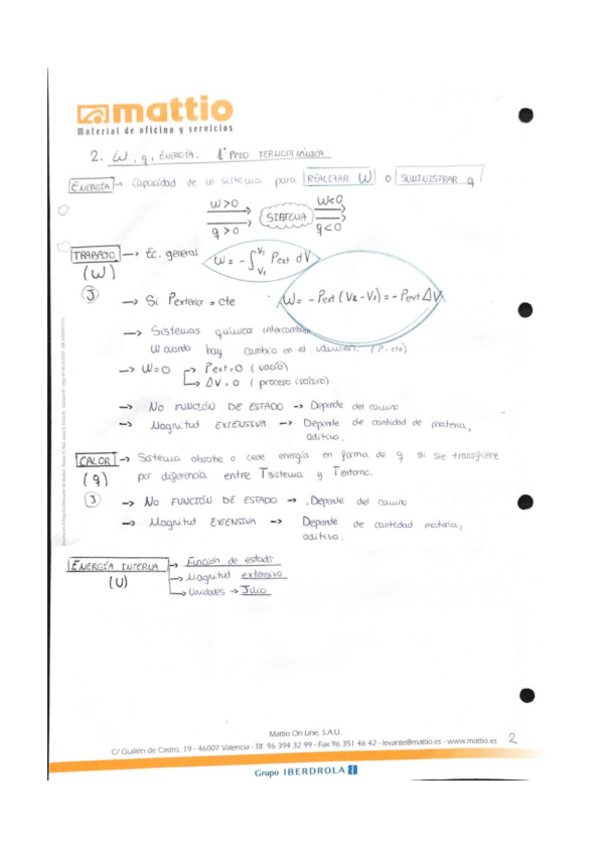 mattio
Material de oficina y servicios
2. W, q, ENERGÍA. 1er PPIO TERMODINÁMICA
ENERGÍA → Capacidad de un sistema para REALIZAR W o SUMINISTRAR q
W>0 W<0
SISTEMA
q>0 q<0
TRABAJO → Ec. general W = - ∫V1V2 Pext dV
(W)
J → Si Pexterior = cte W = - Pext (V2 - V1) = - Pext ΔV
→ Sistemas químicos intercambian
W cuando hay cambio en el volumen. (P=cte)
→ W=0 → Pext=0 (vacío)
→ ΔV=0 (proceso isócoro)
→ NO FUNCIÓN DE ESTADO → Depende del camino
→ Magnitud EXTENSIVA → Depende de cantidad de materia,
aditiva.
CALOR → Sistema absorbe o cede energía en forma de q si se transfiere
(q) por diferencia entre Tsistema y Tentorno.
J → NO FUNCIÓN DE ESTADO → Depende del camino
→ Magnitud EXTENSIVA → Depende de cantidad materia,
aditiva.
ENERGÍA INTERNA → Función de estado
(U) → Magnitud extensiva
→ Unidades → Julio
Mattio On Line, S.A.U.
C/ Guillén de Castro, 19 - 46007 Valencia - Tlf. 96 394 32 99 - Fax 96 351 46 42 - levante@mattio.es - www.mattio.es 2
Grupo IBERDROLA